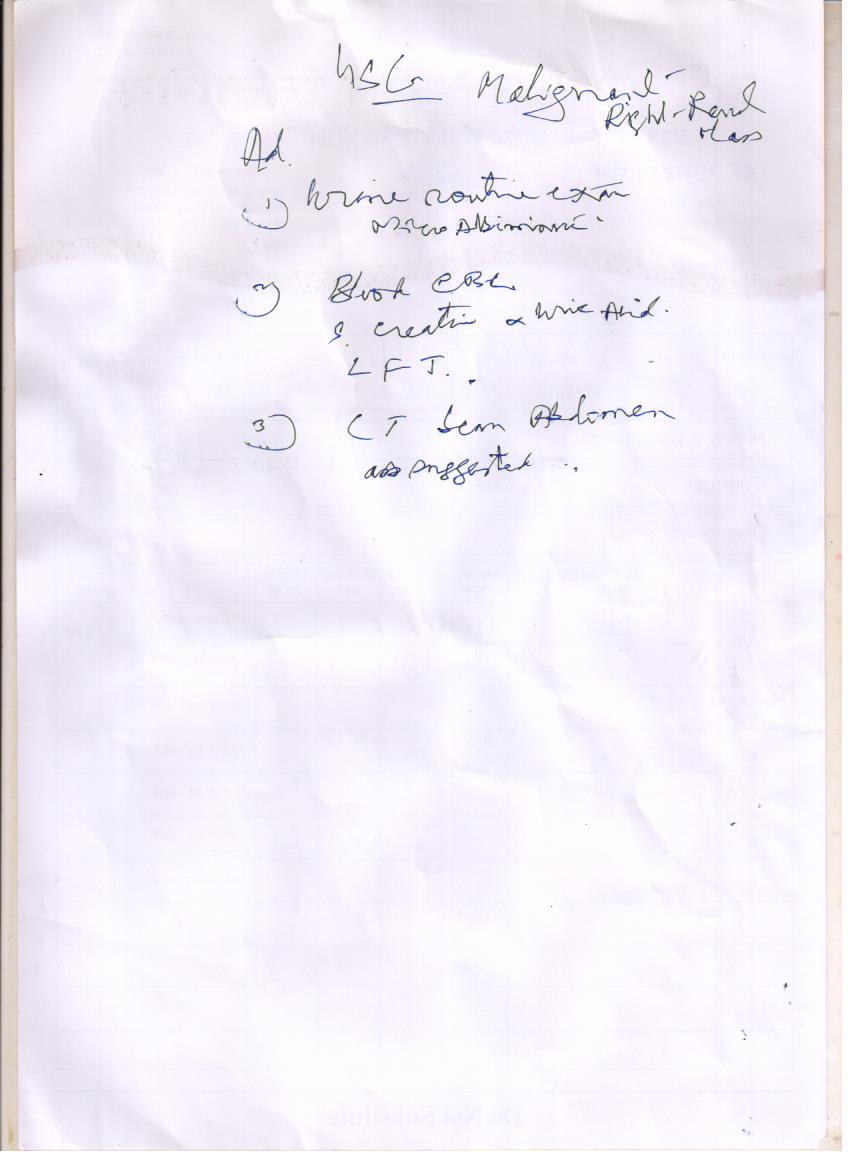 USG Malignant
Right Renal
Mass
Ad.
1) Urine routine exam
Micro
2) Blood CBC
S. Creatin & Uric Acid.
L F T.
3) CT Scan Abdomen
as suggested
Do Not Substitute